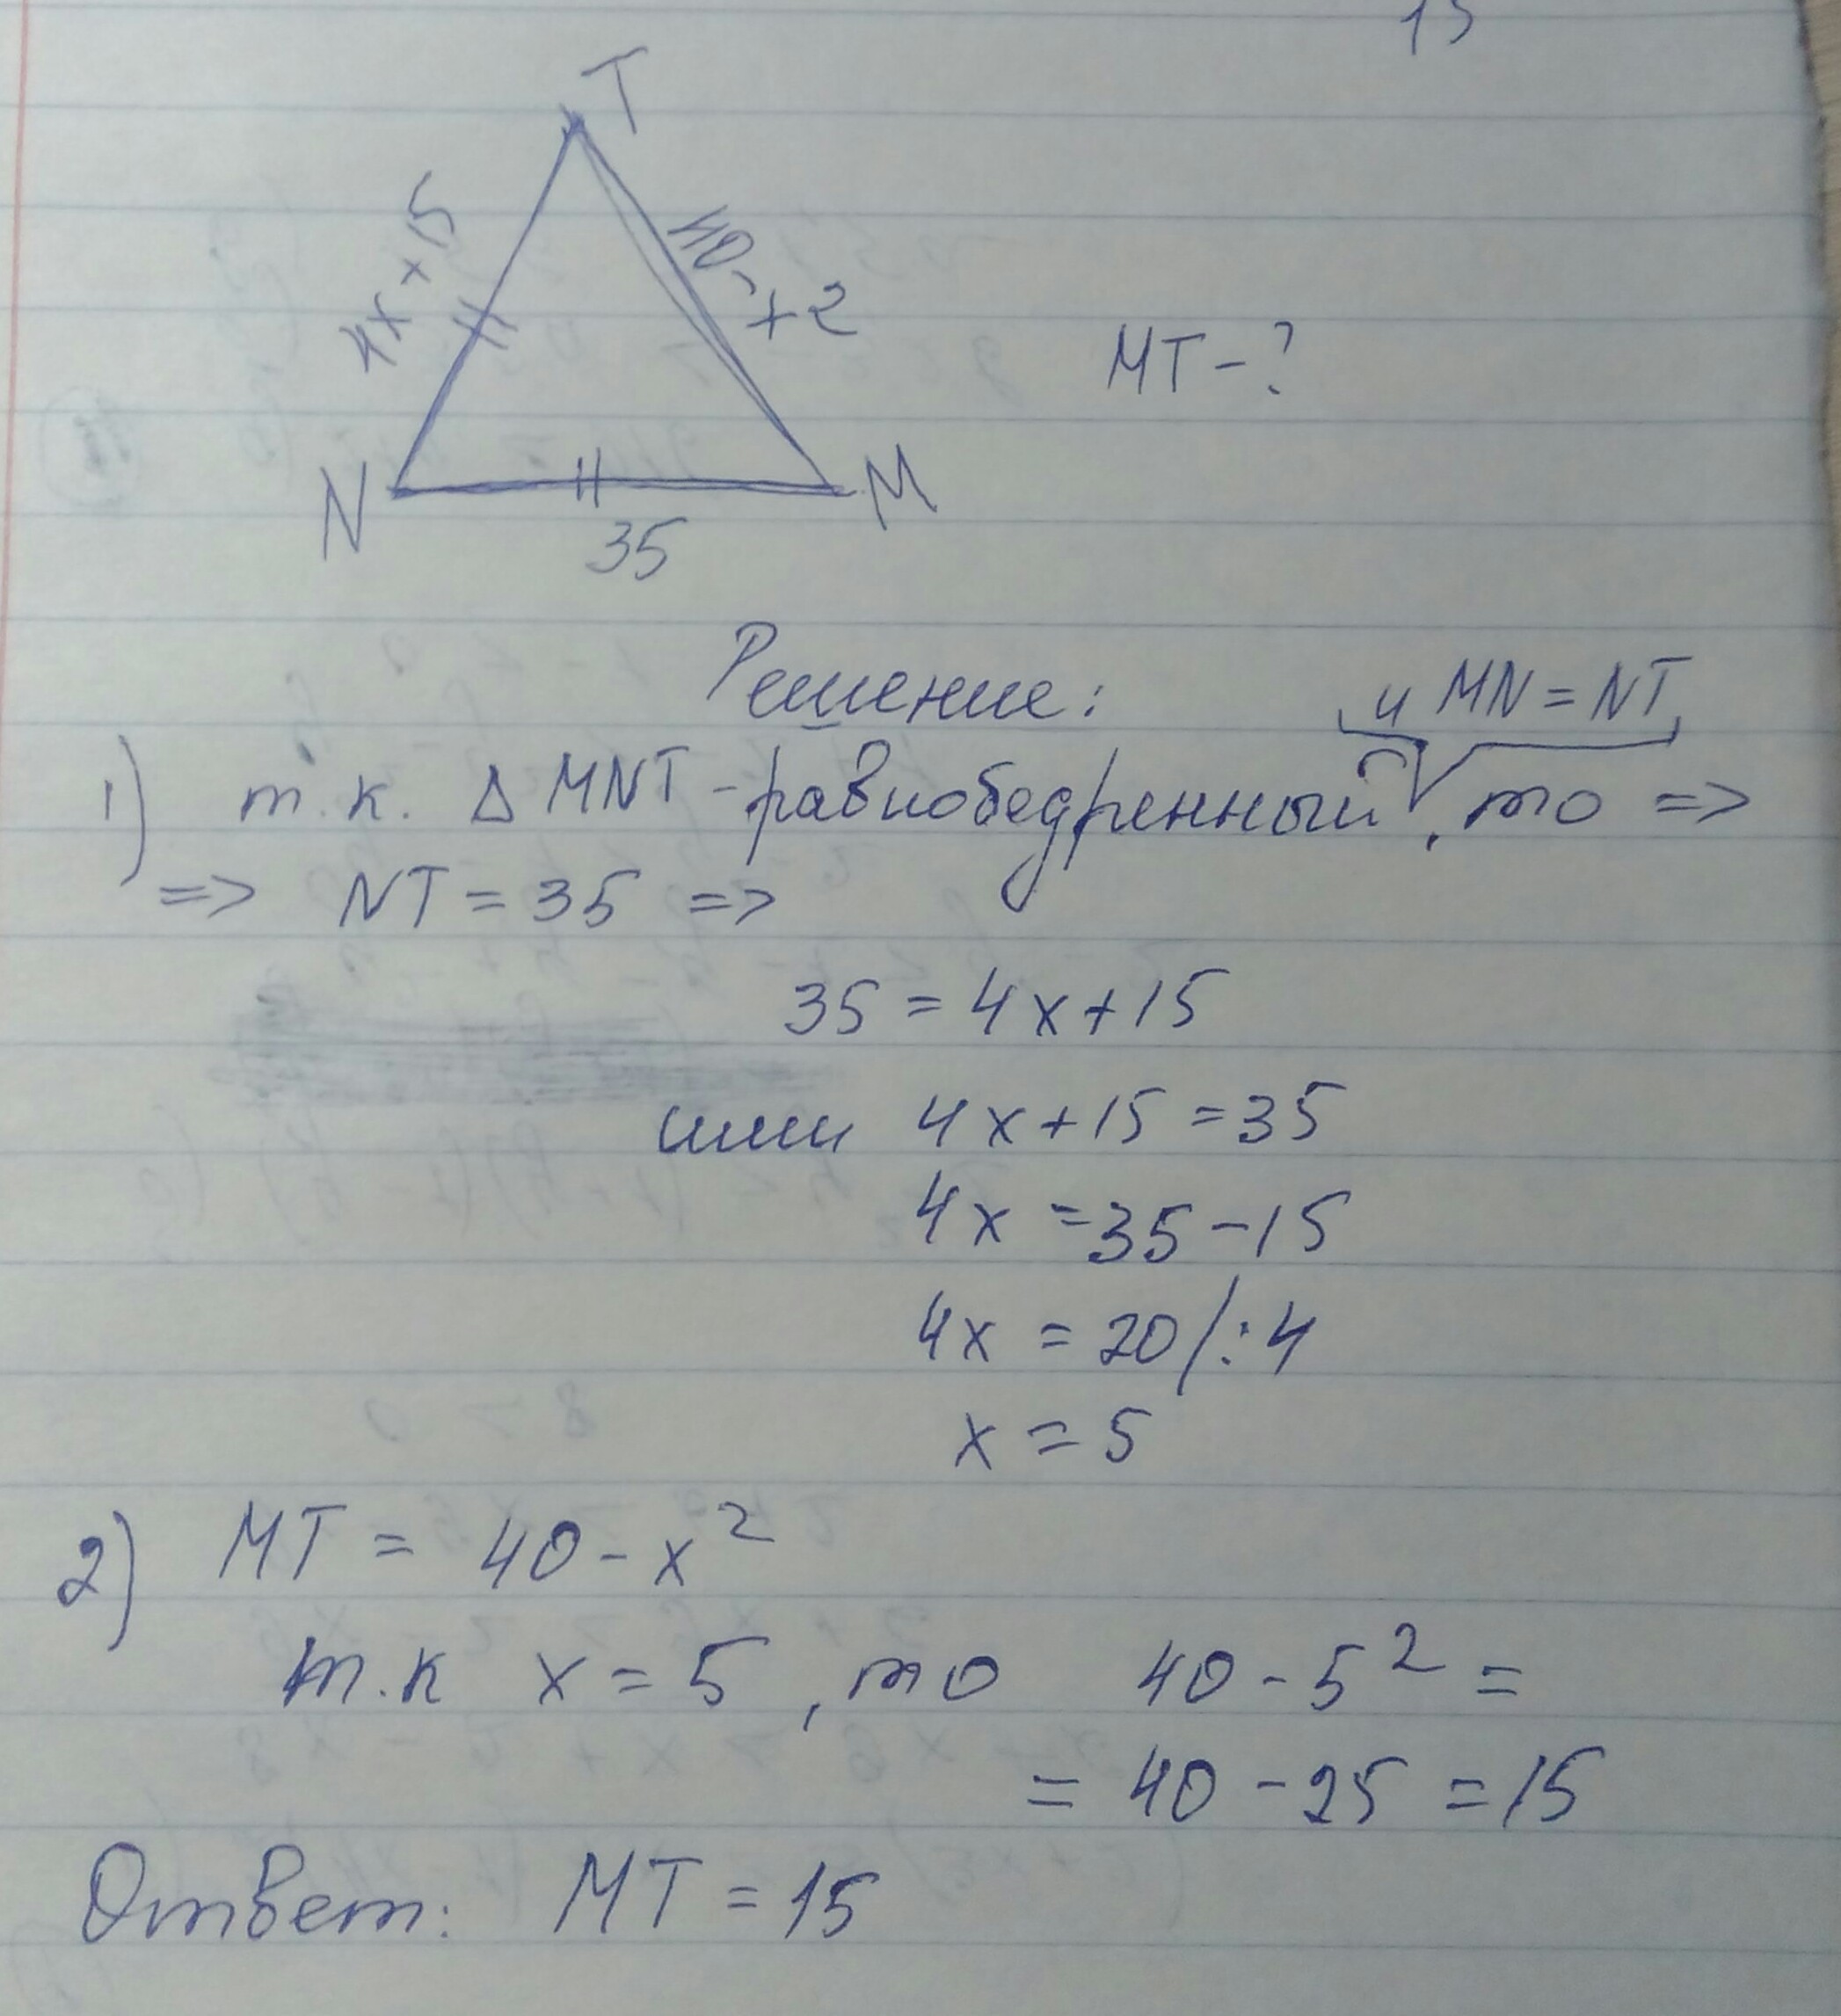 15
T
4x+15
40-x²
MT-?
N
M
35
Решение:
и MN=NT
1) т.к. Δ MNT-равнобедренный, то =>
=> NT=35 =>
35=4x+15
или 4x+15=35
4x=35-15
4x=20/:4
x=5
2) MT=40-x²
т.к x=5, то 40-5²=
=40-25=15
Ответ: MT=15